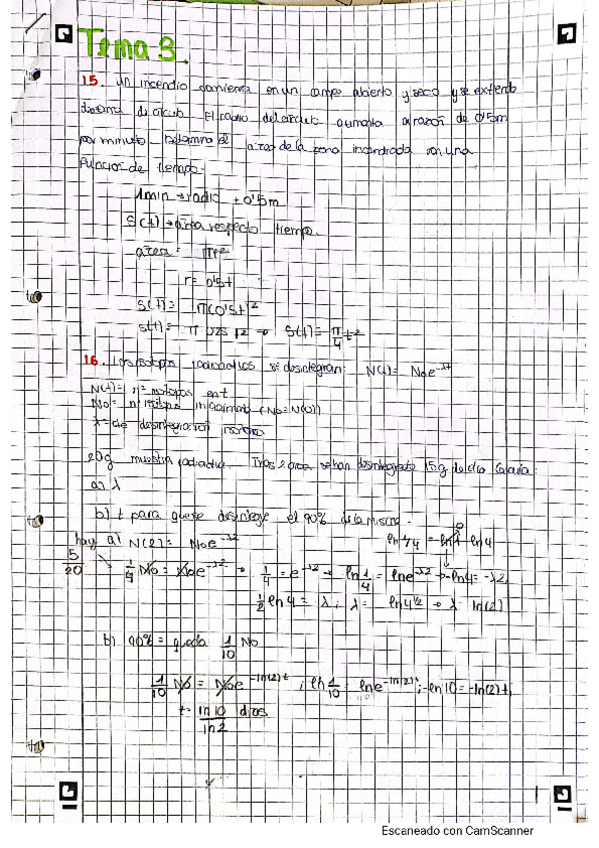 Tema 3.
15. Un incendio comienza en un campo abierto y seco y se extiende
forma de círculo. El radio del círculo aumenta a razón de 0'5m
por minuto. Determina el área de la zona incendiada con una
función de tiempo.
1min → radio + 0'5m
S(t) → área respecto tiempo.
área = πr²
r = 0'5t
S(t) = π(0'5t)²
S(t) = π 0'25 t² → S(t) = π/4 t²
16. Los isótopos radioactivos se desintegran: N(t) = N₀e^-λt
N(t) = nº isótopos en t
N₀ = nº isótopos inicial (N₀ = N(0))
λ = cte desintegración isótopo
20g muestra radiactiva. Tras 2 se han desintegrado 15g de
a) λ
b) t para que se desintegre el 90% de la misma.
hay 5/20 a) N(2) = N₀e^-λ2 ln 1/4 = ln1 - ln4
1/4 N₀ = N₀e^-λ2 → 1/4 = e^-λ2 → ln 1/4 = lne^-λ2 → -ln4 = -λ2;
1/2 ln4 = λ; λ = ln4^1/2 → λ = ln(2)
b) 90% = queda 1/10 N₀
1/10 N₀ = N₀e^-ln(2)t; ln 1/10 = lne^-ln(2)t; -ln10 = -ln(2)t;
t = ln10/ln2 días
Escaneado con CamScanner